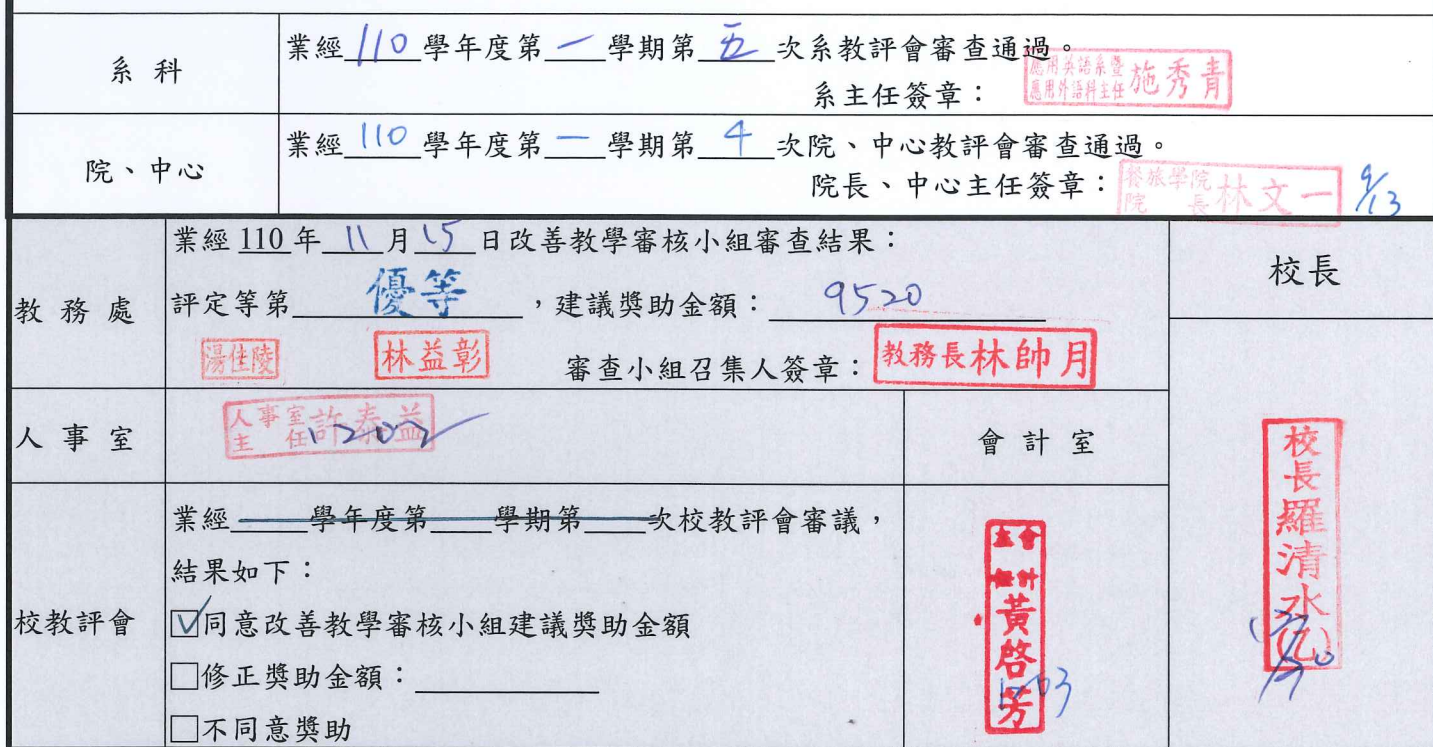 系科
業經110學年度第一學期第五次系教評會審查通過。
系主任簽章：
應用英語系暨應用外語科主任 施秀青
院、中心
業經110學年度第一學期第4次院、中心教評會審查通過。
院長、中心主任簽章：
餐旅學院院長 林文一 9/13
教務處
業經110年11月15日改善教學審核小組審查結果：
評定等第 優等，建議獎助金額：9520
湯佳陵 林益彰 審查小組召集人簽章：教務長林帥月
校長
校長羅清水(乙)
人事室
人事室主任 許泰益 1202
會計室
會計主任 黃啓芳 1203
校教評會
業經 學年度第 學期第 次校教評會審議，
結果如下：
☑同意改善教學審核小組建議獎助金額
□修正獎助金額：
□不同意獎助